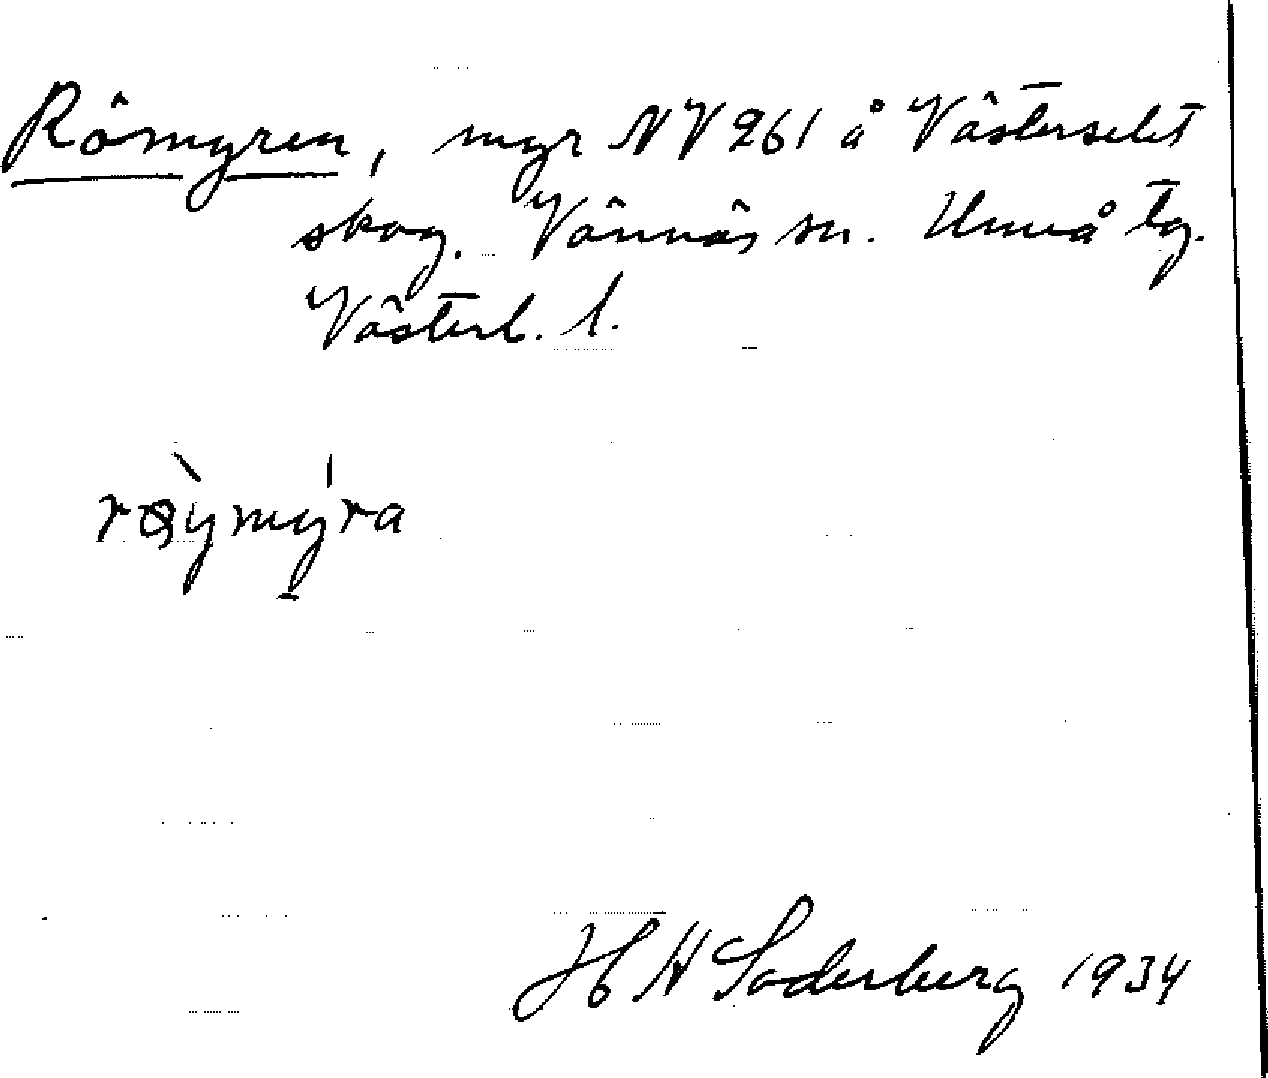 Römyren, myr NV 261 å Västerselet
skog. Vännäs sn. Umeå tg.
Västerb. l.
rø̀ymýra
H H Söderberg 1934